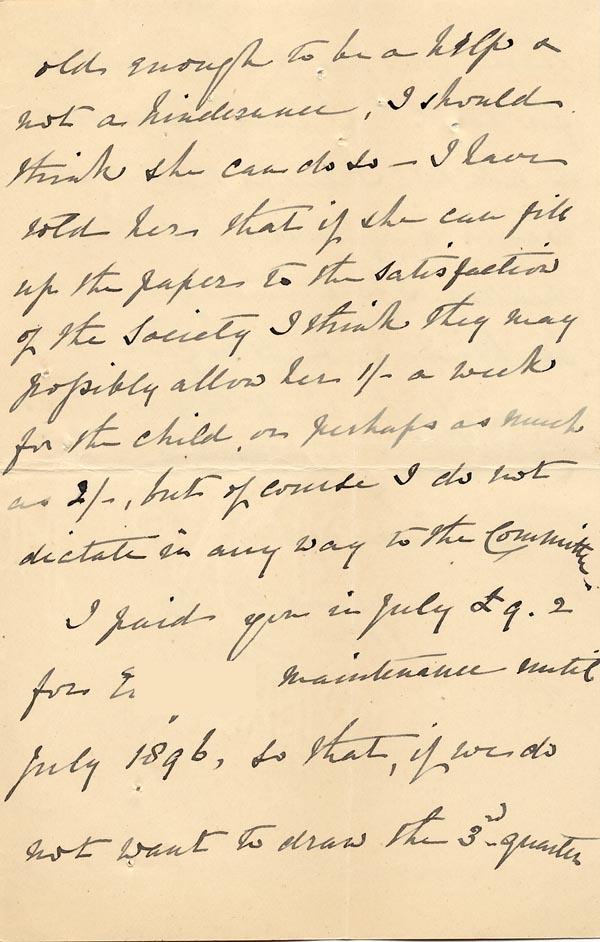 old enough to be a help &
not a hinderance, I should
think she can do so – I have
told her that if she can fill
up the papers to the satisfaction
of the Society I think they may
possibly allow her 1/- a week
for the child, or perhaps as much
as 2/-, but of course I do not
dictate in any way to the Committee.
I paid you in July £9.2
for E. maintenance until
July 1896, so that, if we do
not want to draw the 3rd quarter